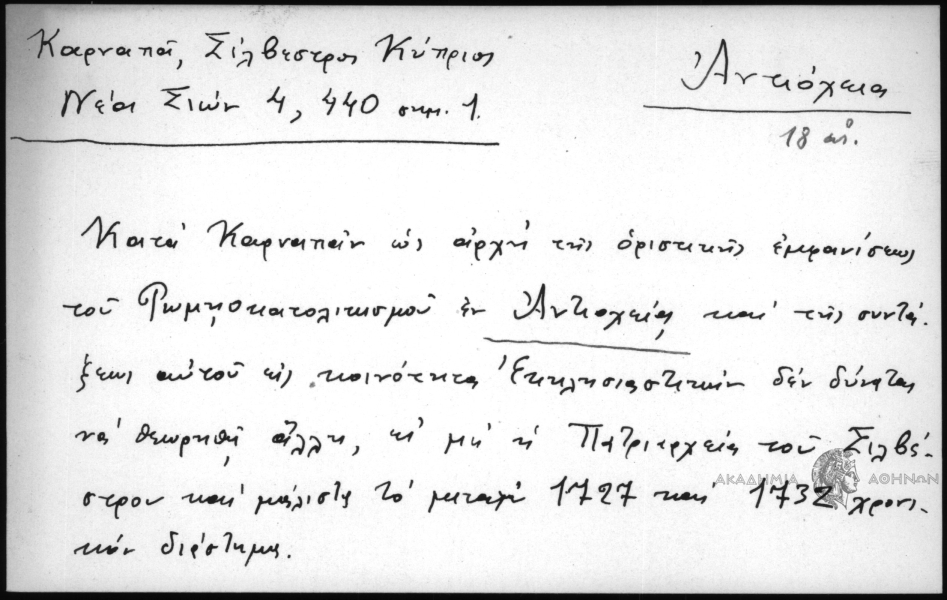 Καρναπᾶ, Σίλβεστρος Κύπριος
Νέα Σιών 4, 440 σημ. 1.
Ἀντιόχεια
18 αἰ.
Κατά Καρναπᾶν ὡς ἀρχή τῆς ὁριστικῆς ἐμφανίσεως
τοῦ Ρωμηοκατολικισμοῦ ἐν Ἀντιοχείᾳ καί τῆς συντά-
ξεως αὐτοῦ εἰς κοινότητα Ἐκκλησιαστικήν δέν δύναται
νά θεωρηθῇ ἄλλη, εἰ μή ἡ Πατριαρχεία τοῦ Σιλβέ-
στρου καί μάλιστα τό μεταξύ 1727 καί 1732 χρονι-
κόν διάστημα.
ΑΚΑΔΗΜΙΑ ΑΘΗΝΩΝ